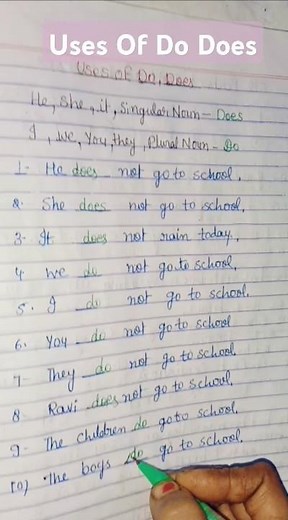 Uses Of Do Does
Uses of Do, Does
He, She, it, Singular Noun - Does
I, we, You, they, Plural Noun - Do
1- He does not go to school.
2. She does not go to school.
3- It does not rain today.
4 we do not go to school.
5. I do not go to school.
6. You do not go to school
7- They do not go to school.
8. Ravi does not go to school.
9- The children do go to school.
10) The boys do go to school.